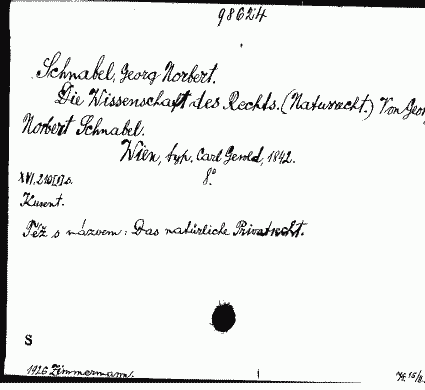 98624
Schnabel, Georg Norbert.
Die Wissenschaft des Rechts. (Naturrecht.) Von Georg
Norbert Schnabel.
Wien, typ. Carl Gerold, 1842.
XVI, 210[I] s. 8°
Kusent.
Též s názvem: Das natürliche Privatrecht.
S
1926 Zimmermann.